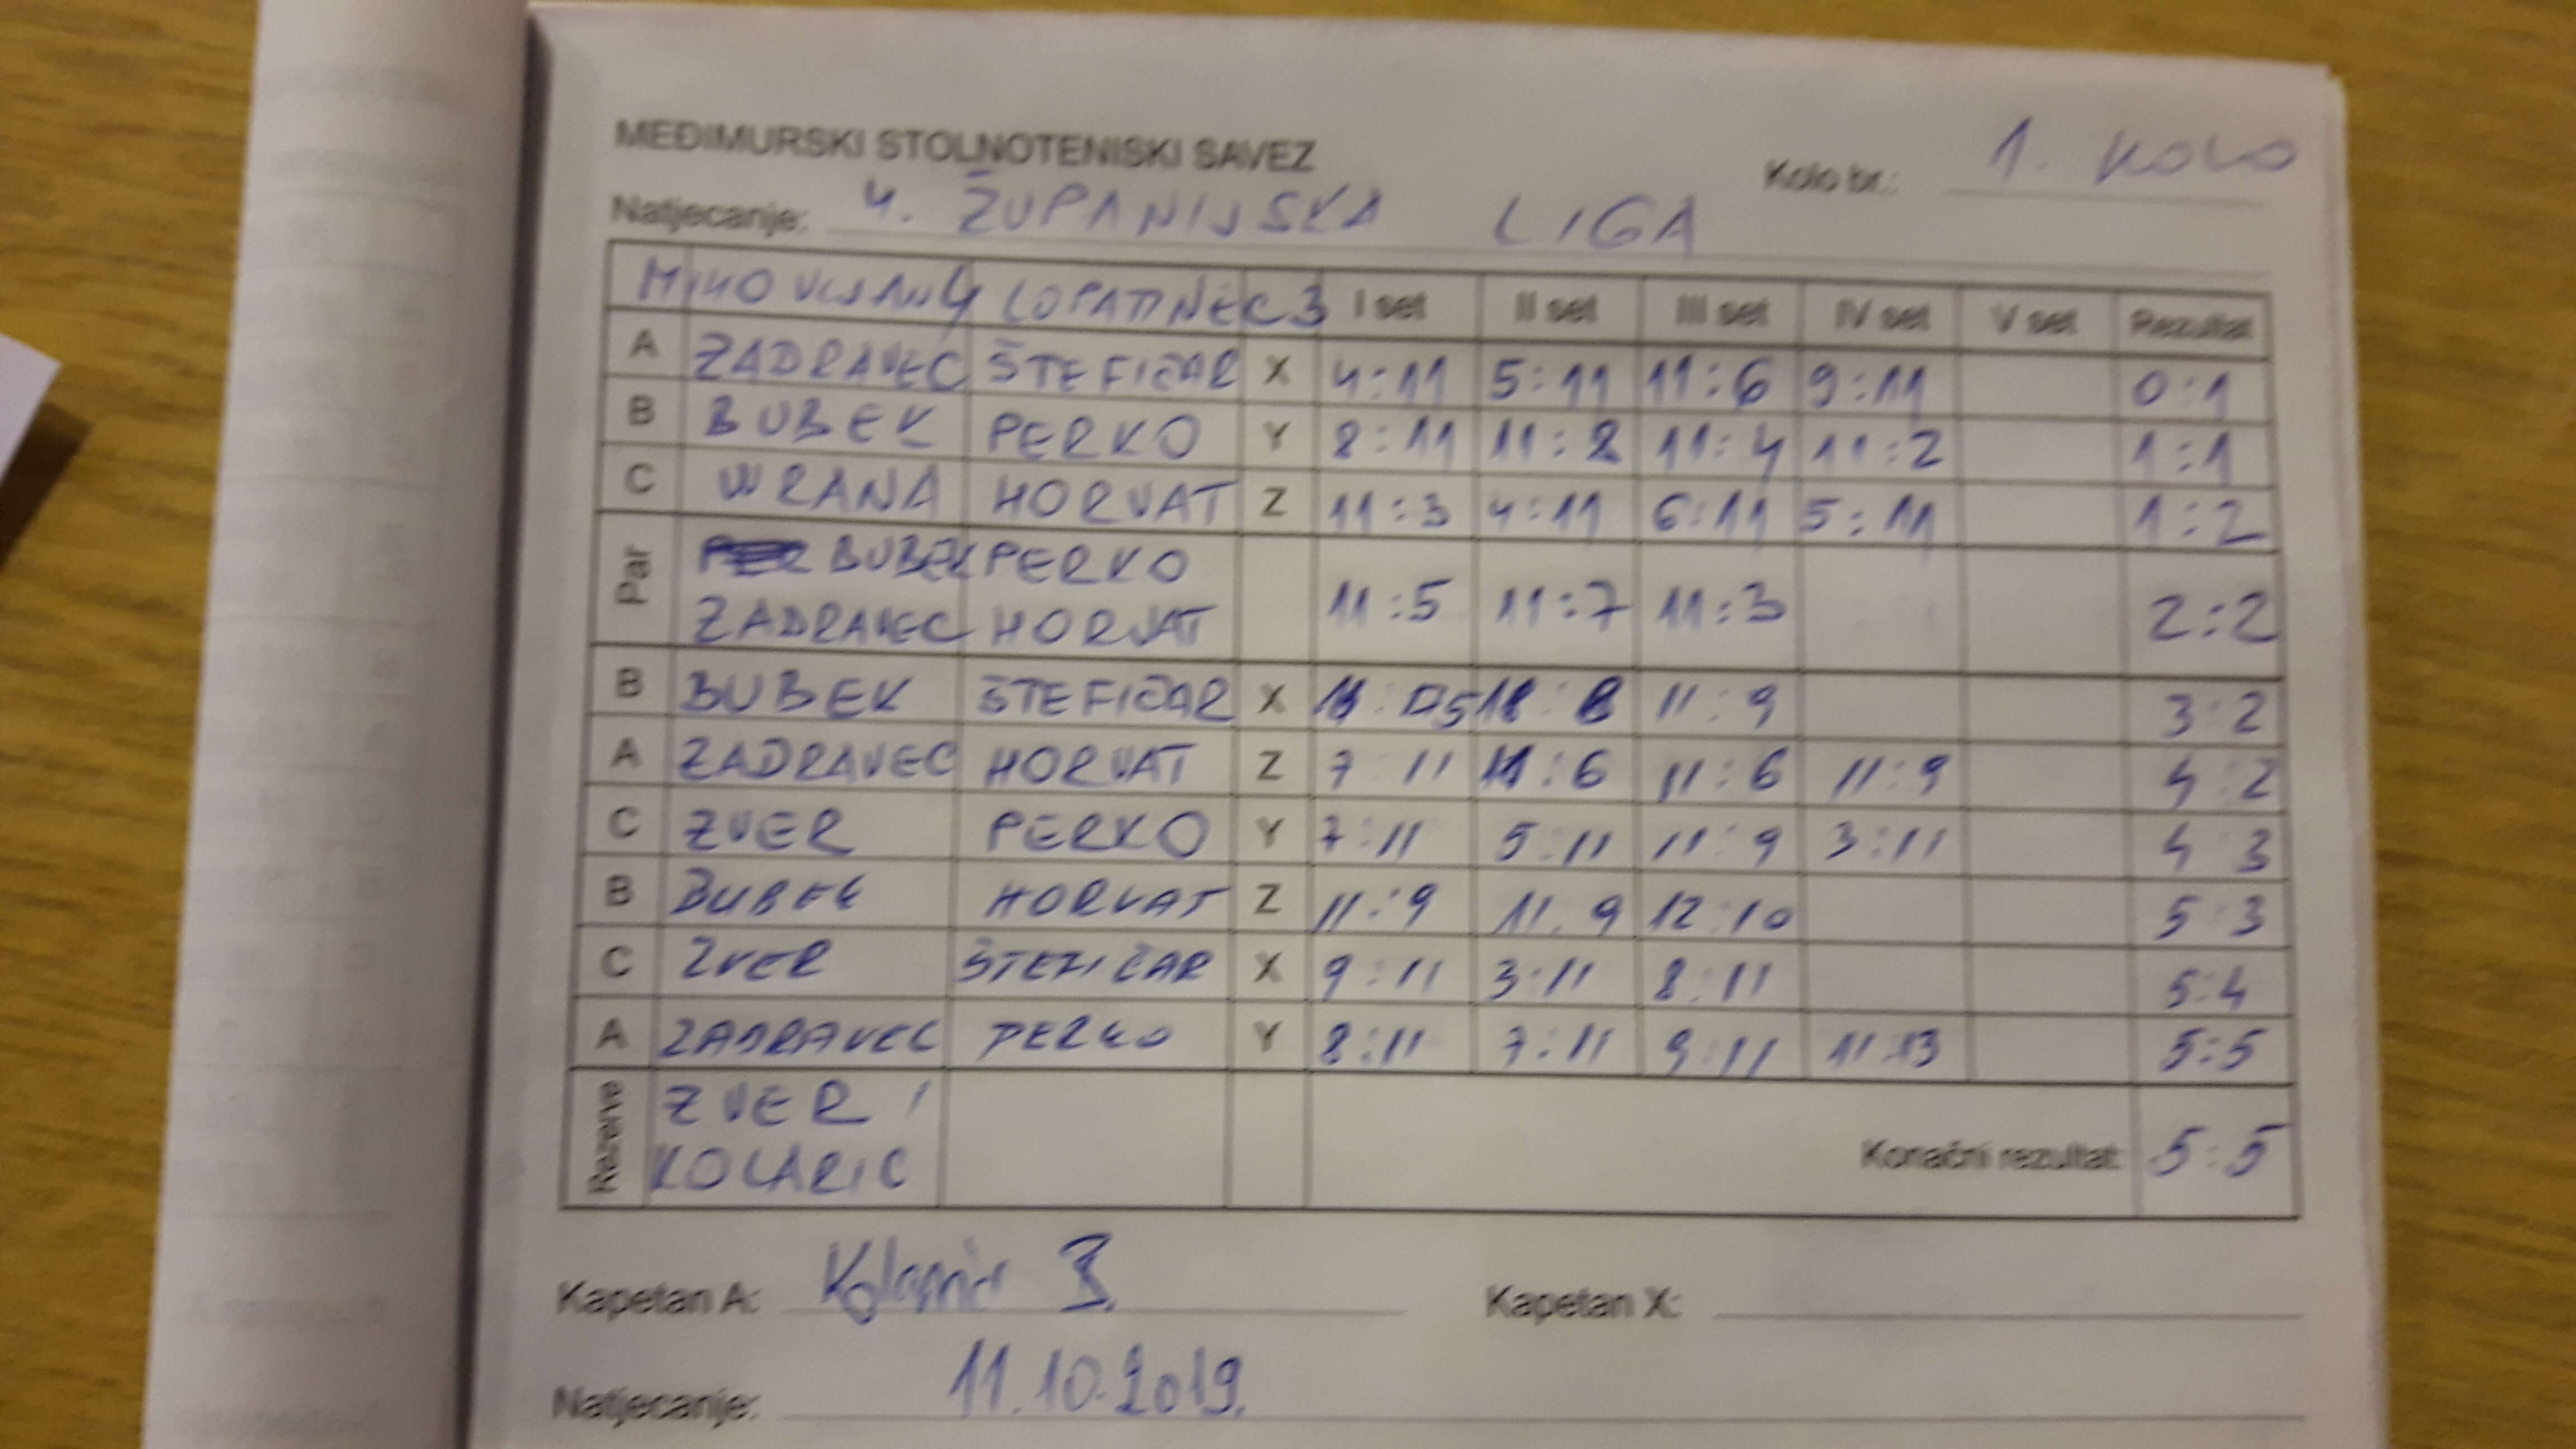 MEĐIMURSKI STOLNOTENISKI SAVEZ
Kolo br.: 1. KOLO
Natjecanje: 4. ŽUPANIJSKA LIGA
LOPATINEC 3 I set II set III set IV set V set Rezultat
A ZADRAVEC ŠTEFIČAR X 4:11 5:11 11:6 9:11 0:1
B BUBEK PERKO Y 8:11 11:8 11:4 11:2 1:1
C WRANA HORVAT Z 11:3 4:11 6:11 5:11 1:2
Par BUBEK PERKO
ZADRAVEC HORVAT 11:5 11:7 11:3 2:2
B BUBEK ŠTEFIČAR X 11:9 3:2
A ZADRAVEC HORVAT Z 7:11 11:6 11:6 11:9 4:2
C ZVER PERKO Y 7:11 5:11 11:9 3:11 4:3
B BUBEK HORVAT Z 11:9 11:9 12:10 5:3
C ZVER ŠTEFIČAR X 9:11 3:11 8:11 5:4
A ZADRAVEC PERKO Y 8:11 7:11 9:11 11:13 5:5
Rezerve ZVER /
KOLARIC
Konačni rezultat: 5:5
Kapetan A: Kapetan X:
Natjecanje: 11.10.2019.